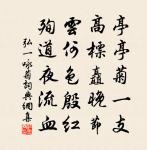 亭亭菊一支
高標矗晚節
雲何色殷紅
殉道夜流血
弘一詠菊詞典網集